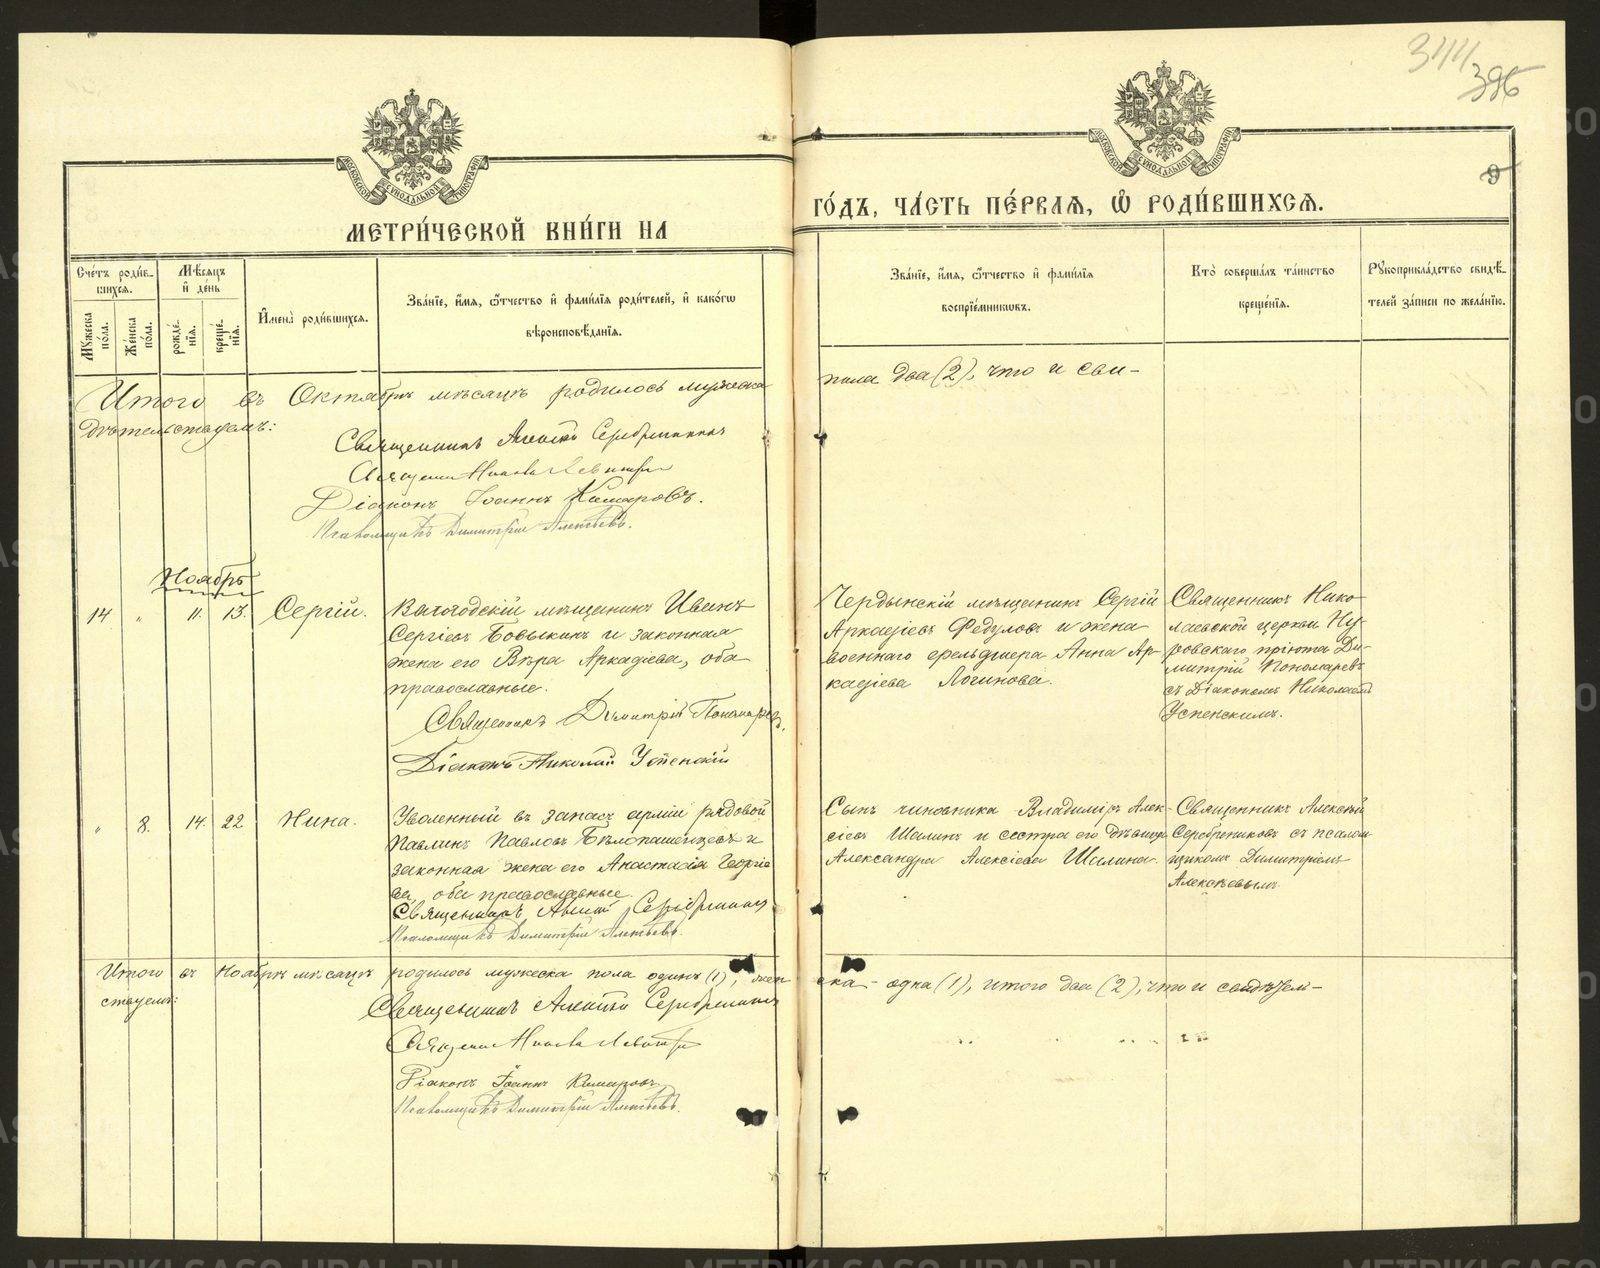 344
396
9
МОСКОВСКОЙ СѴНОДАЛЬНОЙ ТИПОГРАФІИ
МОСКОВСКОЙ СѴНОДАЛЬНОЙ ТИПОГРАФІИ
МЕТРИ́ЧЕСКОЙ КНИ́ГИ НА
ГО́ДЪ, ЧА́СТЬ ПЕ́РВАѦ, Ѡ҆ РОДИ́ВШИХСѦ.
Сче́тъ роди́в-
шихся.
Мѣ́сяцъ
и҆ де́нь
Мꙋ́жеска
по́ла.
Же́нска
по́ла.
рожде́-
нїя.
креще́-
нїя.
И҆мена̀ роди́вшихся.
Зва́нїе, и҆́мя, ѻ҆́тчество и҆ фами́лїя роди́телей, и҆ како́гѡ
вѣроисповѣ́данїя.
Зва́нїе, и҆́мя, ѻ҆́тчество и҆ фами́лїя
воспрїе́мникѡвъ.
Кто̀ соверша́лъ та́инство
креще́нїя.
Рꙋкоприкла́дство свидѣ́-
телей за́писи по жела́нїю.
Итого въ Октябрѣ мѣсяцѣ родилось мужеска
пола два (2), что и сви-
дѣтельствуемъ:
Священникъ Алексій Серебренниковъ
Священникъ
Діаконъ Іоаннъ Комаровъ.
Псаломщикъ Димитрій Алексѣевъ.
Ноябрь
14 " 11. 13. Сергій.
Вологодскій мѣщанинъ Иванъ
Сергіевъ Бовыкинъ и законная
жена его Вѣра Аркадіева, оба
православные.
Священникъ Димитрій Пономаревъ.
Діаконъ Николай Успенскій
Чердынскій мѣщанинъ Сергій
Аркадіевъ Федуловъ и жена
военнаго фельдшера Анна Ар-
кадіева Логинова.
Священникъ Нико-
лаевской церкви Ну-
ровскаго пріюта Ди-
митрій Пономаревъ
съ діакономъ Николаемъ
Успенскимъ.
" 8. 14. 22 Нина.
Уволенный въ запасъ арміи рядовой
Павлинъ Павловъ Бѣлопашенцевъ и
законная жена его Анастасія Георгіе-
ва, оба православные.
Священникъ Алексій Серебренниковъ
Псаломщикъ Димитрій Алексѣевъ.
Сынъ чиновника Владиміръ Алек-
сіевъ Шалинъ и сестра его дѣвица
Александра Алексіева Шалина.
Священникъ Алексѣй
Серебренниковъ съ псалом-
щикомъ Димитріемъ
Алексѣевымъ.
Итого въ Ноябрѣ мѣсяцѣ родилось мужеска пола одинъ (1), жен-
ска - одна (1), итого два (2), что и свидѣтель-
ствуемъ:
Священникъ Алексій Серебренниковъ
Священникъ
Діаконъ Іоаннъ Комаровъ
Псаломщикъ Димитрій Алексѣевъ.
METRIKI.GASO-URAL.RU